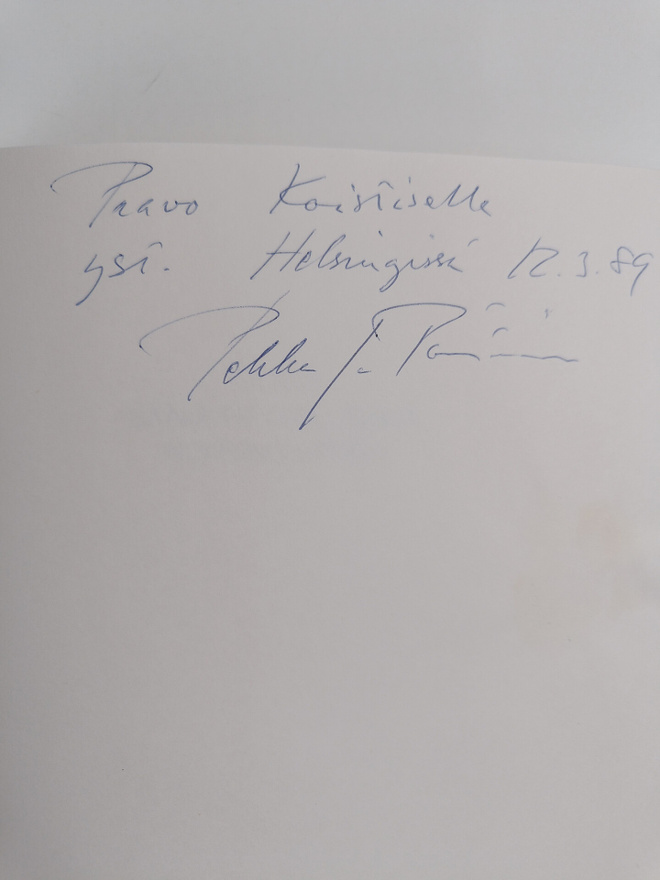 Paavo Koistiselle
yst. Helsingissä 12.3.89
Pekka J.